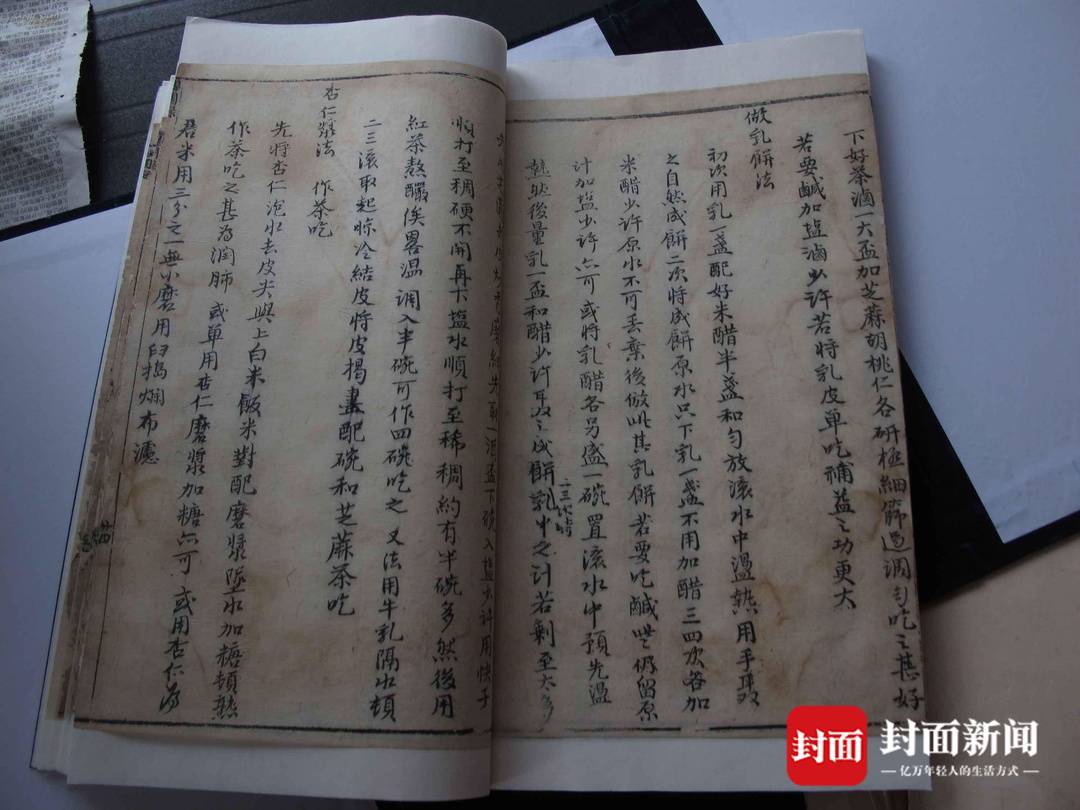 下好茶滷一大盃加芝蔴胡桃仁各研極細篩過調勻吃之甚好
若要鹹加塩滷少許若將乳皮单吃補益之功更大
做乳餅法
初次用乳一盏配好米醋半盏和匀放滾水中溫热用手
之自然成餅二次將成餅原水只下乳一盏不用加醋三四次各加
米醋少許原水不可丢棄後倣此其乳餅若要吃鹹些仍留原
計加塩少許亦可或將乳醋各另盛一碗置滾水中預先溫
熱然後量乳一盃和醋少許之成餅乳中之計若剩至太多
二三次時
少許用快子
順打至稠硬不開再下塩水順打至稀稠約有半碗多然後用
紅茶熬釅俟畧温調入半碗可作四碗吃之 又法用牛乳隔水頓
二三滾取起晾冷結皮將皮揭盡配碗和芝蔴茶吃
杏仁漿法 作茶吃
先將杏仁泡水去皮尖與上白米飯米對配磨漿墜水加糖頓熟
作茶吃之甚為潤肺 或单用杏仁磨漿加糖亦可 或用杏仁為
君米用三分之一無小磨用臼搗爛布濾
封面
封面新闻
亿万年轻人的生活方式